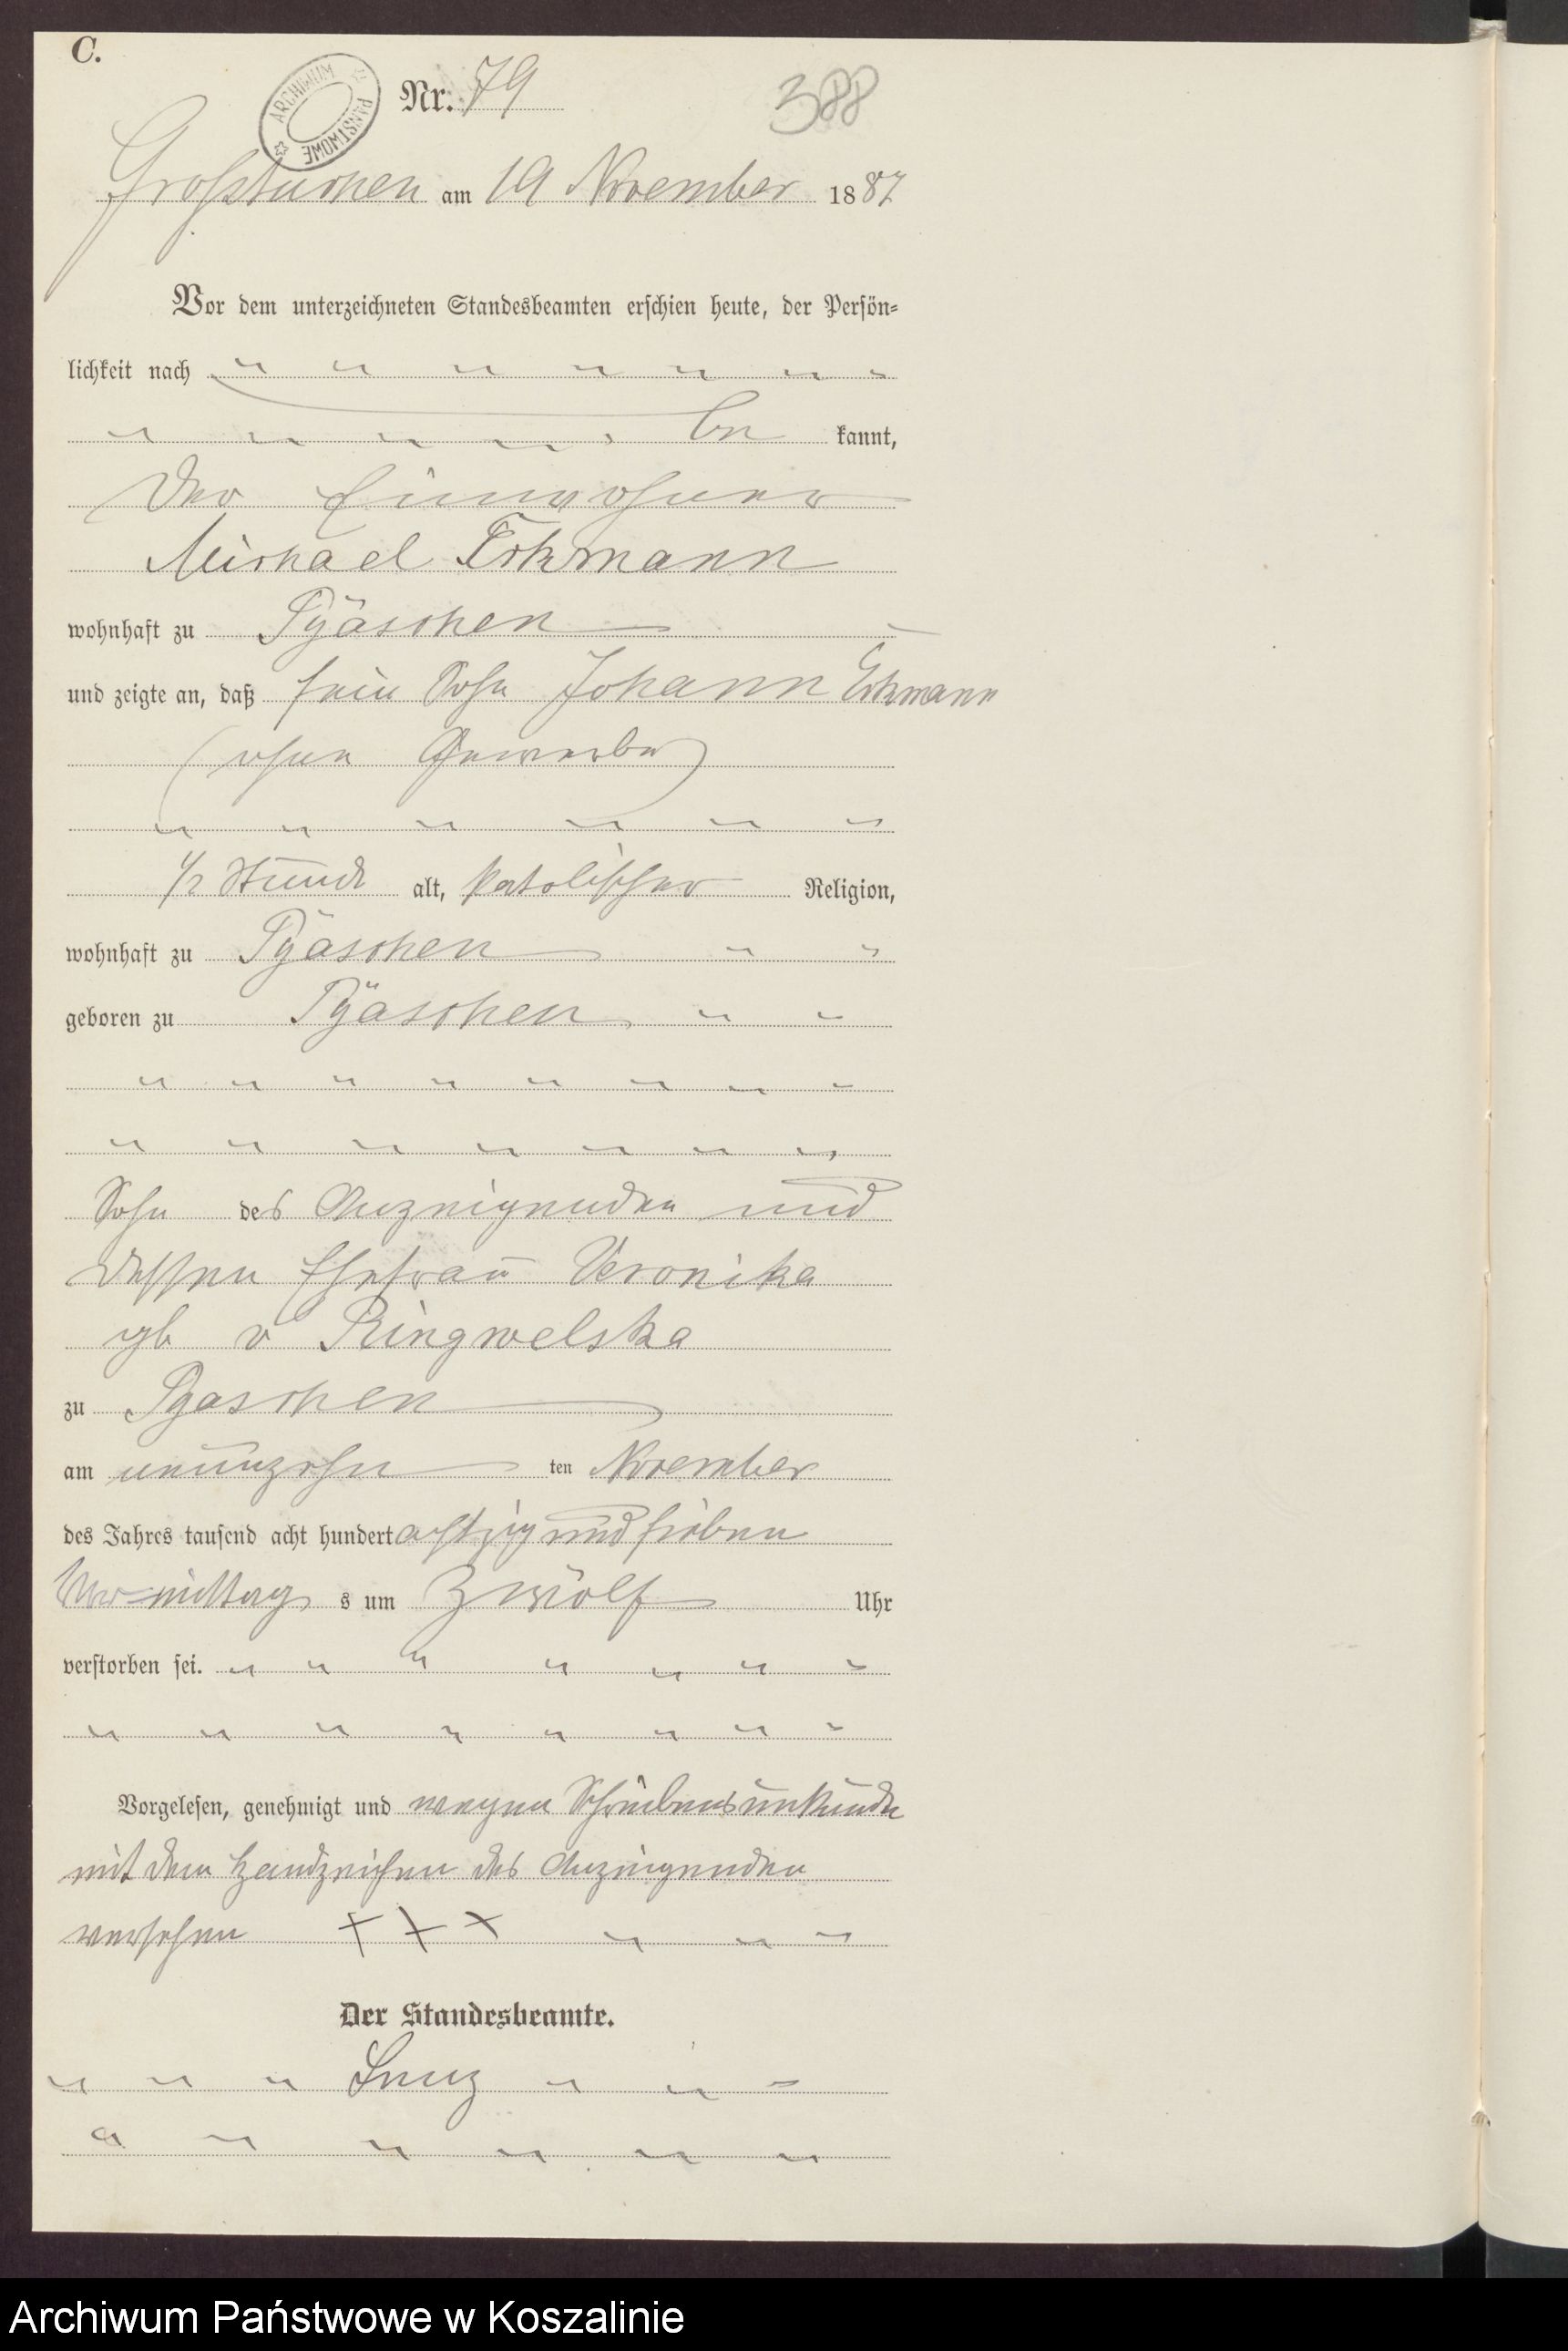 C.
ARCHIWUM PAŃSTWOWE
Nr. 79
388
Grosstuchen am 19 November 1887
Vor dem unterzeichneten Standesbeamten erschien heute, der Persön-
lichkeit nach " " " " " " "
" " " " " be kannt,
der Einwohner
Michael Erhmann
wohnhaft zu Pyaschen
und zeigte an, daß sein Sohn Johann Erhmann
(ohne Gewerbe)
" " " " " "
1/2 Stunde alt, katolischer Religion,
wohnhaft zu Pyaschen " "
geboren zu Pyaschen " "
" " " " " " " "
" " " " " " "
Sohn des Anzeigenden und
dessen Ehefrau Veronika
gb v Ringwelska
zu Pyaschen
am neunzehn ten November
des Jahres tausend acht hundert achtzig und sieben
Vormittag s um Zwölf Uhr
verstorben sei. " " " " " " "
" " " " " " " "
Vorgelesen, genehmigt und wegen Schreibensunkunde
mit dem Handzeichen des Anzeigenden
versehen + + + " " "
Der Standesbeamte.
" " " Lenz " " "
" " " " " "
Archiwum Państwowe w Koszalinie